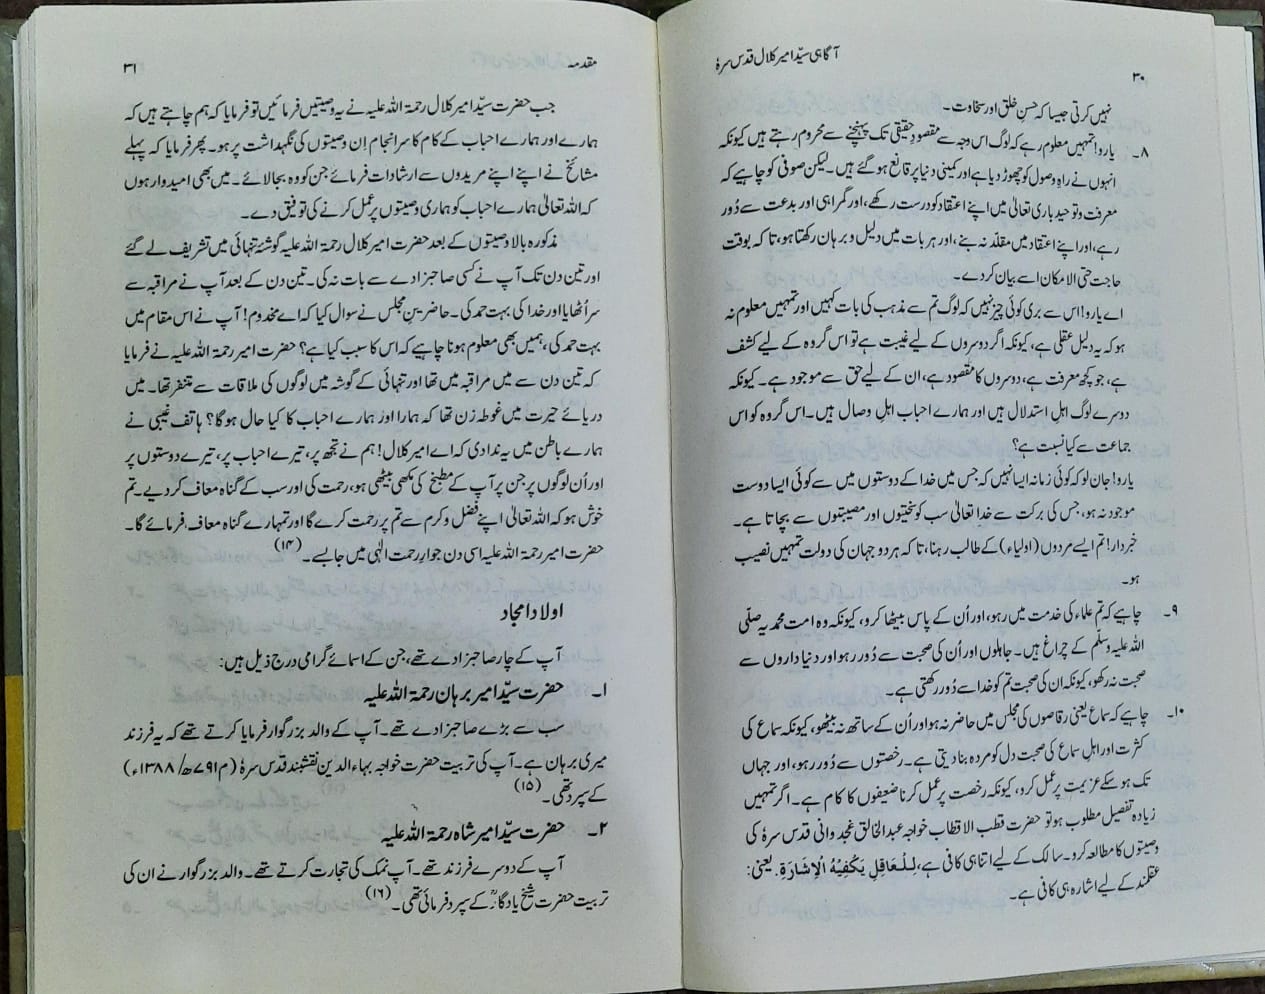 آگاہی سیّد امیر کلال قدس سرہٗ
۳۰
نہیں کرتی جیسا کہ حسنِ خلق اور سخاوت۔
۸۔ یارو! تمہیں معلوم رہے کہ لوگ اس وجہ سے مقصودِ حقیقی تک پہنچنے سے محروم رہتے ہیں کیونکہ
انہوں نے راہِ وصول کو چھوڑ دیا ہے اور کمینی دنیا پر قانع ہو گئے ہیں۔ لیکن صوفی کو چاہیے کہ
معرفت و توحید باری تعالیٰ میں اپنے اعتقاد کو درست رکھے، اور گمراہی اور بدعت سے دُور
رہے، اور اپنے اعتقاد میں مقلّد نہ بنے، اور ہر بات میں دلیل و برہان رکھتا ہو، تا کہ بوقت
حاجت حتی الامکان اسے بیان کر دے۔
اے یارو! اس سے بری کوئی چیز نہیں کہ لوگ تم سے مذہب کی بات کہیں اور تمہیں معلوم نہ
ہو کہ یہ دلیل عقلی ہے، کیونکہ اگر دوسروں کے لیے غیبت ہے تو اس گروہ کے لیے کشف
ہے، جو کچھ معرفت ہے، دوسروں کا مقصود ہے، ان کے لیے حق سے موجود ہے۔ کیونکہ
دوسرے لوگ اہلِ استدلال ہیں اور ہمارے احباب اہلِ وصال ہیں۔ اس گروہ کو اس
جماعت سے کیا نسبت ہے؟
یارو! جان لو کہ کوئی زمانہ ایسا نہیں کہ جس میں خدا کے دوستوں میں سے کوئی ایسا دوست
موجود نہ ہو، جس کی برکت سے خدا تعالیٰ سب کو سختیوں اور مصیبتوں سے بچاتا ہے۔
خبردار! تم ایسے مردوں (اولیاء) کے طالب رہنا، تا کہ ہر دو جہان کی دولت تمہیں نصیب
ہو۔
۹۔ چاہیے کہ تم علماء کی خدمت میں رہو، اور اُن کے پاس بیٹھا کرو، کیونکہ وہ امت محمدیہ صلّی
اللہ علیہ وسلّم کے چراغ ہیں۔ جاہلوں اور اُن کی صحبت سے دُور رہو اور دنیا داروں سے
صحبت نہ رکھو، کیونکہ ان کی صحبت تم کو خدا سے دُور رکھتی ہے۔
۱۰۔ چاہیے کہ سماع یعنی رقاصوں کی مجلس میں حاضر نہ ہو اور اُن کے ساتھ نہ بیٹھو، کیونکہ سماع کی
کثرت اور اہلِ سماع کی صحبت دل کو مردہ بنا دیتی ہے۔ رخصتوں سے دُور رہو، اور جہاں
تک ہو سکے عزیمت پر عمل کرو، کیونکہ رخصت پر عمل کرنا ضعیفوں کا کام ہے۔ اگر تمہیں
زیادہ تفصیل مطلوب ہو تو حضرت قطب الاقطاب خواجہ عبدالخالق غجدوانی قدس سرہٗ کی
وصیتوں کا مطالعہ کرو۔ سالک کے لیے اتنا ہی کافی ہے، لِلْعَاقِلِ یَکْفِیْہُ الْاِشَارَۃِ. یعنی:
عقلمند کے لیے اشارہ ہی کافی ہے۔
مقدمہ
۳۱
جب حضرت سیّد امیر کلال رحمۃ اللہ علیہ نے یہ وصیتیں فرمائیں تو فرمایا کہ ہم چاہتے ہیں کہ
ہمارے اور ہمارے احباب کے کام کا سرانجام اِن وصیتوں کی نگہداشت پر ہو۔ پھر فرمایا کہ پہلے
مشائخ نے اپنے اپنے مریدوں سے ارشادات فرمائے جن کو وہ بجا لائے۔ میں بھی امیدوار ہوں
کہ اللہ تعالیٰ ہمارے احباب کو ہماری وصیتوں پر عمل کرنے کی توفیق دے۔
مذکورہ بالا وصیتوں کے بعد حضرت امیر کلال رحمۃ اللہ علیہ گوشۂ تنہائی میں تشریف لے گئے
اور تین دن تک آپ نے کسی صاحبزادے سے بات نہ کی۔ تین دن کے بعد آپ نے مراقبہ سے
سر اُٹھایا اور خدا کی بہت حمد کی۔ حاضرینِ مجلس نے سوال کیا کہ اے مخدوم! آپ نے اس مقام میں
بہت حمد کی، ہمیں بھی معلوم ہونا چاہیے کہ اس کا سبب کیا ہے؟ حضرت امیر رحمۃ اللہ علیہ نے فرمایا
کہ تین دن سے میں مراقبہ میں تھا اور تنہائی کے گوشہ میں لوگوں کی ملاقات سے متنفر تھا۔ میں
دریائے حیرت میں غوطہ زن تھا کہ ہمارا اور ہمارے احباب کا کیا حال ہوگا؟ ہاتف غیبی نے
ہمارے باطن میں یہ ندا دی کہ اے امیر کلال! ہم نے تجھ پر، تیرے احباب پر، تیرے دوستوں پر
اور اُن لوگوں پر جن پر آپ کے مطبخ کی مکھی بیٹھی ہو، رحمت کی اور سب کے گناہ معاف کر دیے۔ تم
خوش ہو کہ اللہ تعالیٰ اپنے فضل و کرم سے تم پر رحمت کرے گا اور تمہارے گناہ معاف فرمائے گا۔
حضرت امیر رحمۃ اللہ علیہ اسی دن جوارِ رحمت الٰہی میں جا بسے۔ (۱۴)
اولاد امجاد
آپ کے چار صاحبزادے تھے، جن کے اسمائے گرامی درج ذیل ہیں:
۱۔ حضرت سیّد امیر برہان رحمۃ اللہ علیہ
سب سے بڑے صاحبزادے تھے۔ آپ کے والد بزرگوار فرمایا کرتے تھے کہ یہ فرزند
میری برہان ہے۔ آپ کی تربیت حضرت خواجہ بہاء الدین نقشبند قدس سرہٗ (م ۷۹۱ھ/۱۳۸۸ء)
کے سپرد تھی۔ (۱۵)
۲۔ حضرت سیّد امیر شاہ رحمۃ اللہ علیہ
آپ کے دوسرے فرزند تھے۔ آپ نمک کی تجارت کرتے تھے۔ والد بزرگوار نے ان کی
تربیت حضرت شیخ یادگارؒ کے سپرد فرمائی تھی۔ (۱۶)